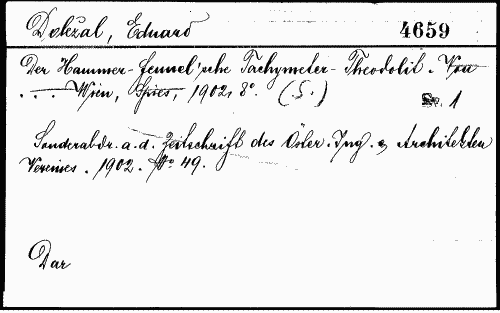 Doležal, Eduard 4659
Der Hammer-Fennel'sche Tachymeter-Theodolit. Von
. . . Wien, Spies, 1902, 8°. (S.) 1
Sonderabdr. a. d. Zeitschrift des Öster. Ing. & Architekten
Vereines. 1902. No 49.
Dar